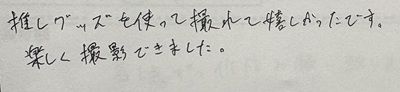 推しグッズを使って撮れて嬉しかったです。
楽しく撮影できました。